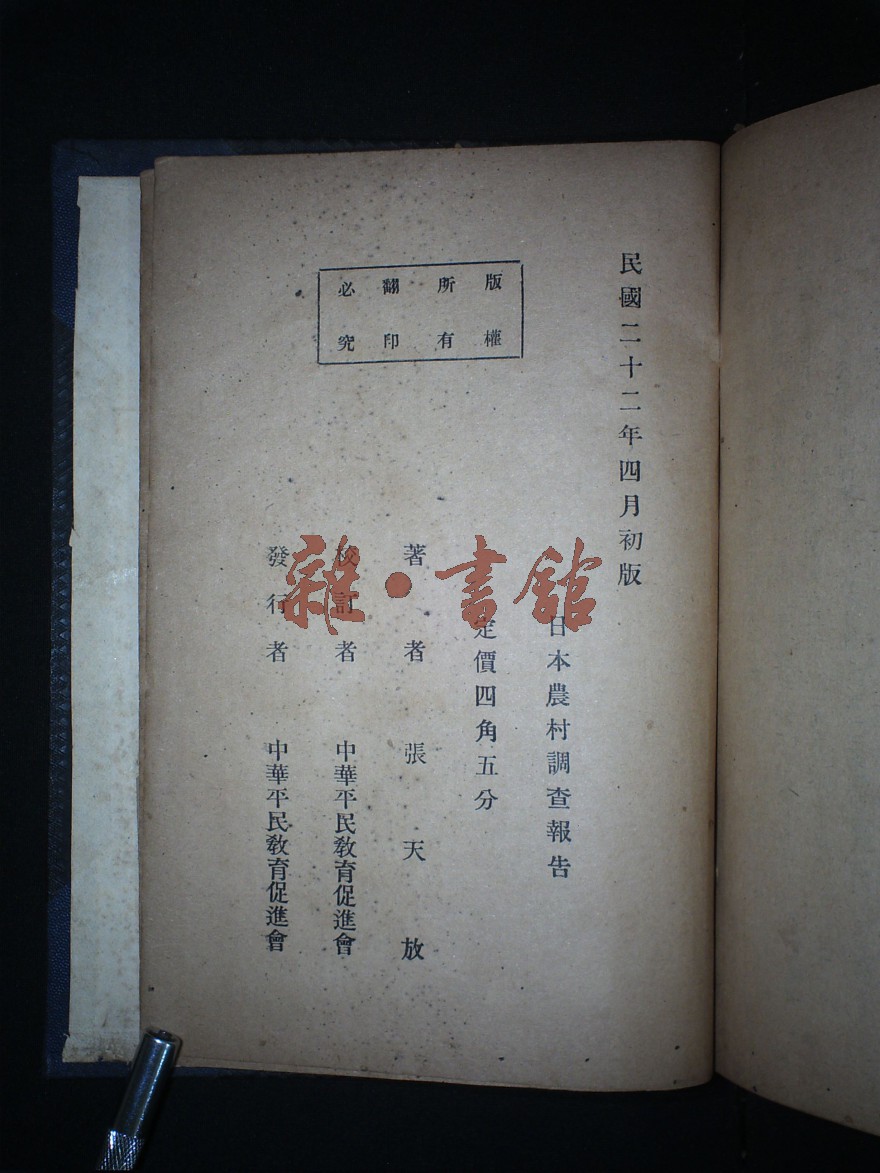 民國二十二年四月初版
日本農村調查報告
定價四角五分
版權
所有
翻印
必究
著者 張天放
校訂者 中華平民敎育促進會
發行者 中華平民敎育促進會
雜·書館